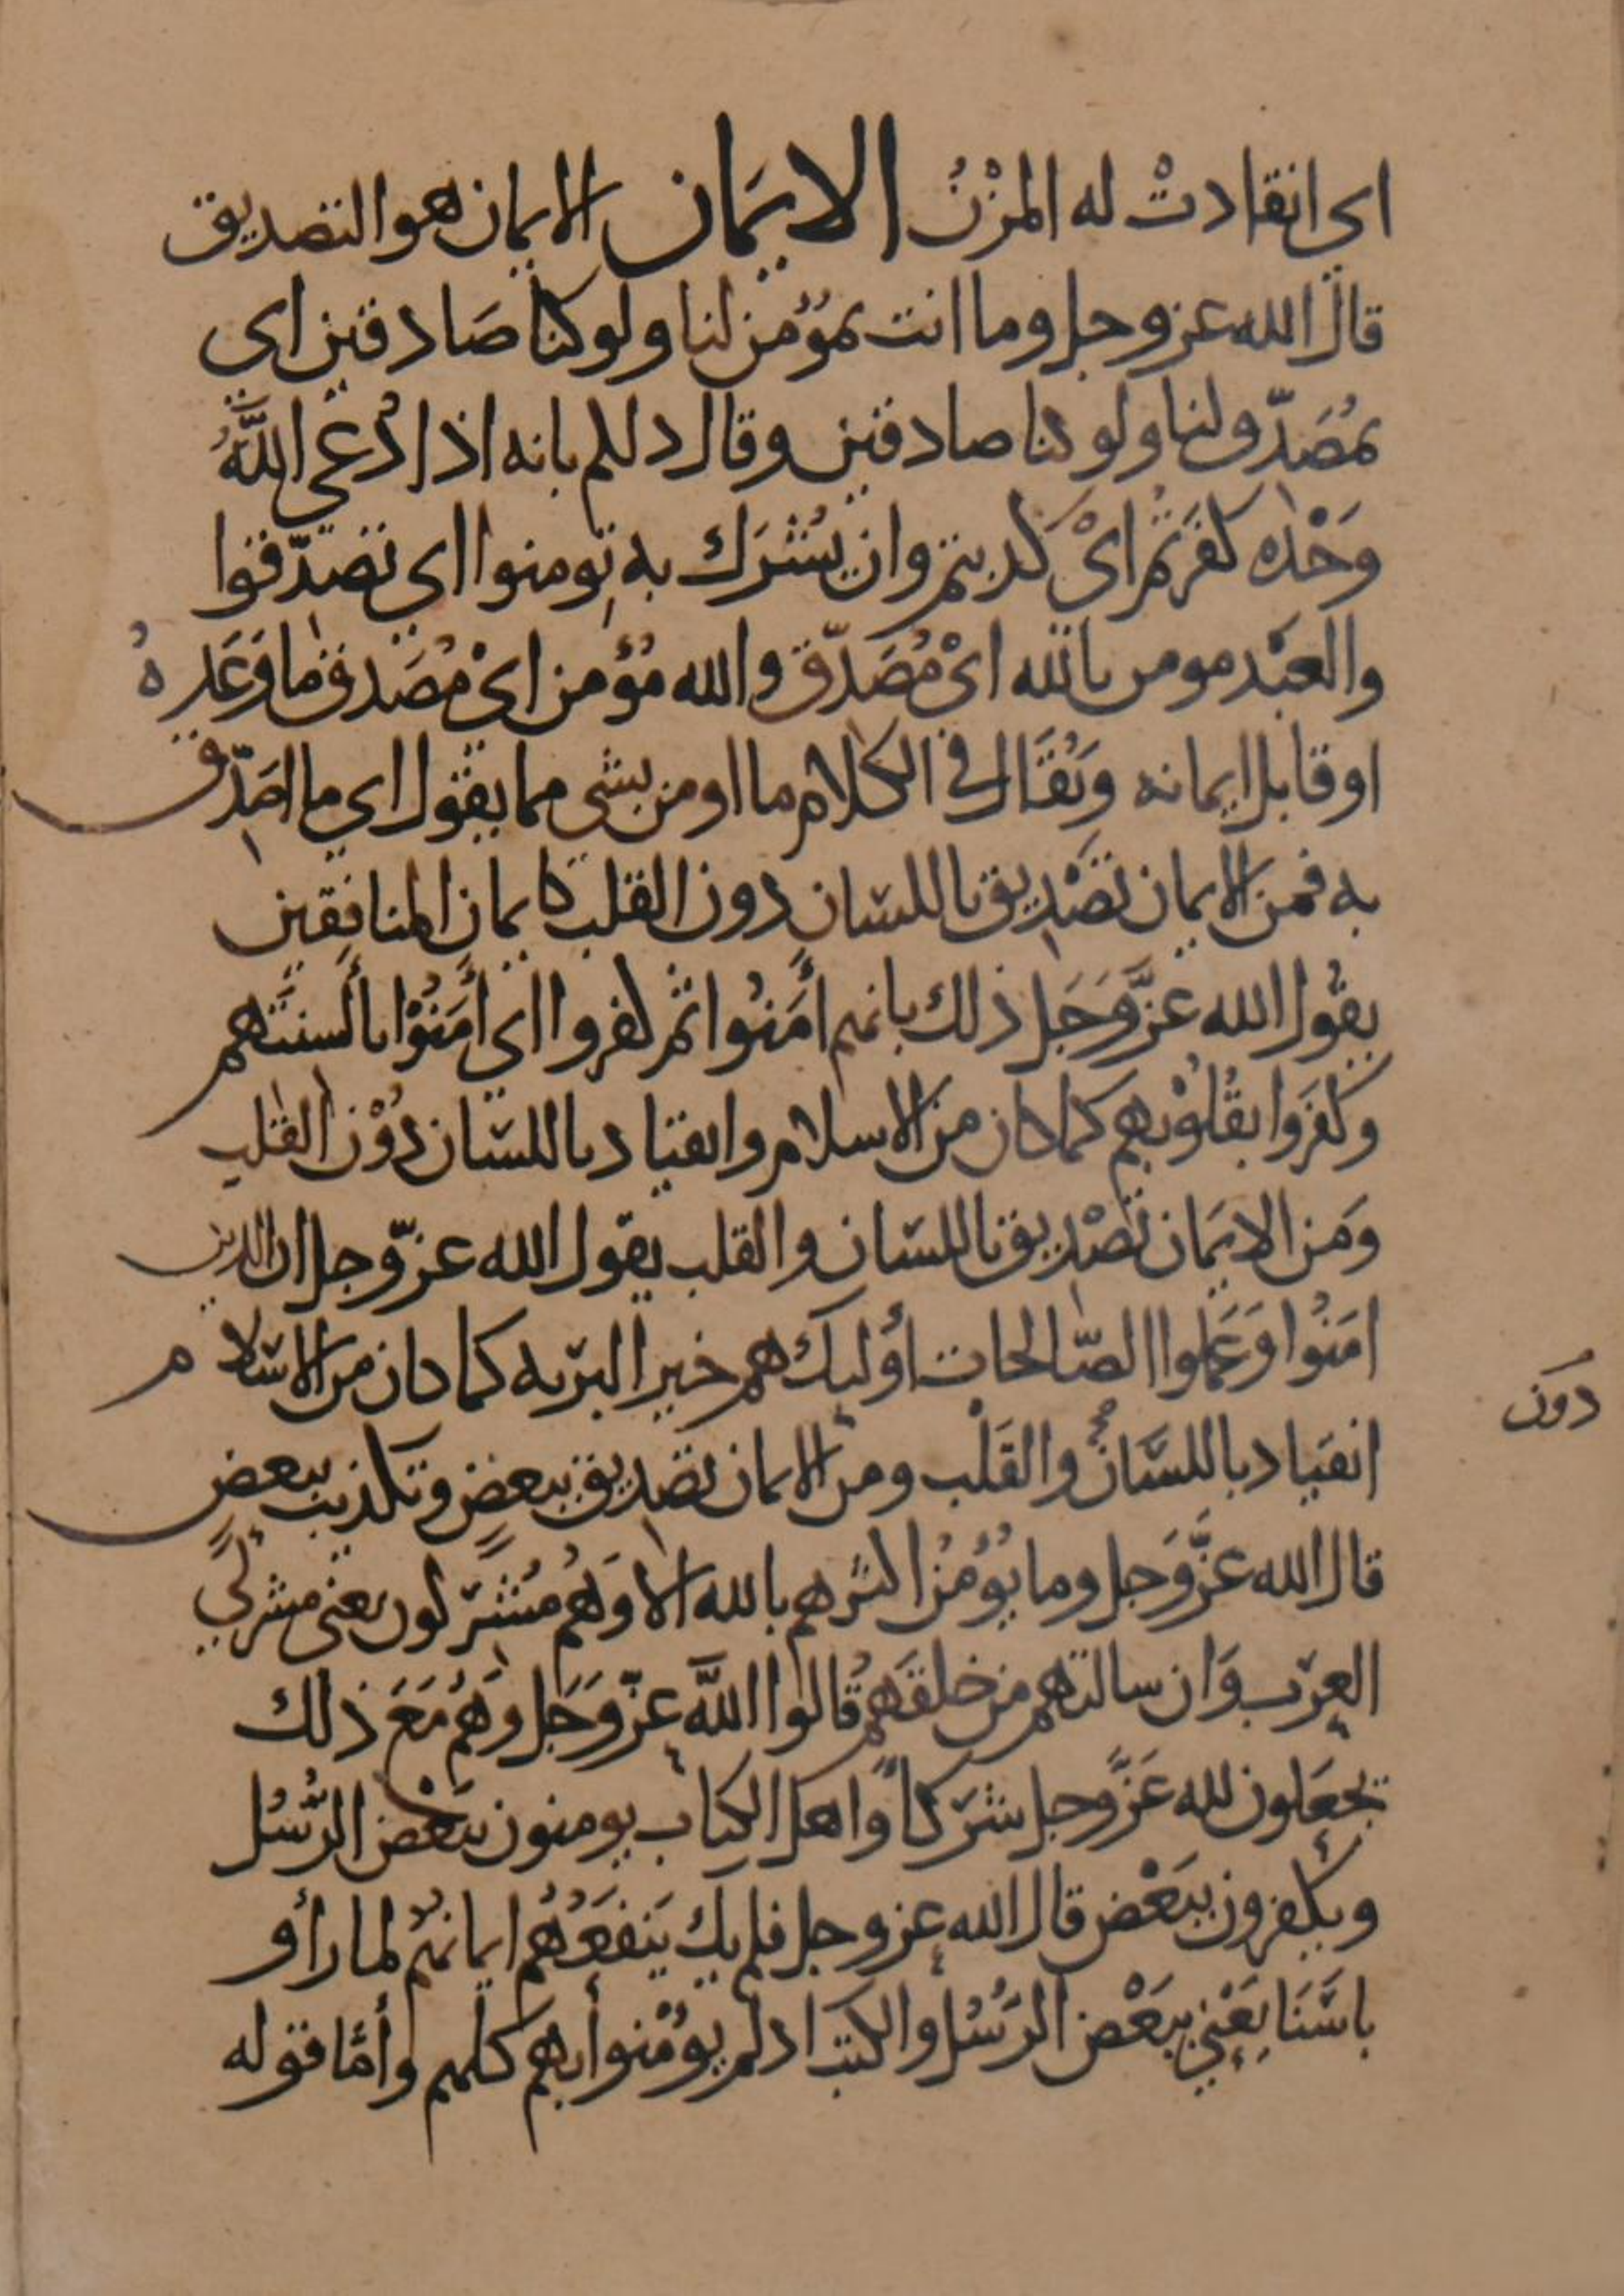 اي انقادتْ له المزْنُ الايمَان الايمان هو التصديق
قال الله عز وجل وما انت بمؤمن لنا ولو كنا صَادقين اي
بمُصَدّق لنا ولو كنا صادقين وقال ذلكم بانه اذا دُعي اللَّهُ
وَحْده كفرتم اىْ كذبتم وان يُشْرَك به تومنوا اي تصدّقوا
والعبْد مومن بالله اىْ مُصَدّق والله مُؤمن اىْ مُصَدق ما وَعَدهُ
او قابل ايمانه وَيُقَال في الكلام ما اومن بشى مما يقول اي ما اصَدّق
به فمن الايمان تصْديق باللسَان دون القلب كايمان المنافِقين
يقُول الله عزَّ وَجَل ذلك بانهم أمَنُوا ثم كفروا اي أمَنُوْا بألسنتهم
وكفَروا بقُلُوْبهم كما كان من الاسلام وانقياد باللسَان دُوْن القلبِ
وَمن الايمَان تصْديق باللسَان والقلب يقول الله عزّ وجل ان الذين
امَنُوا وَعَملوا الصّالحات أوليك هم خير البَريه كما كان من الاسَلام
انقيَاد باللسَّان والقَلْب ومن الايمان تصديق ببعضٍ وتكذيب ببعض
دُون
قال الله عزَّ وَجل وما يؤمُنُ اكثرهم بالله الا وَهُم مُشْرَكون يعني مشركي
العرَب وَان سالتهم من خلقهَم قالوا اللَّه عزّ وَجَل وَهُم مَعَ ذلك
يجعَلون لله عَزَّ وجل شرَكاً وَاهل الكتاب يومنون ببَعْض الرُّسُل
ويكفرون ببَعْض قال الله عز وجل فلم يك يَنفَعُهُم ايمانهُم لما رأو
باسَنَا يَعْني ببَعْض الرسُل والكتب اذ لم يؤمْنوأ بهم كلهم وأمَّا قوله